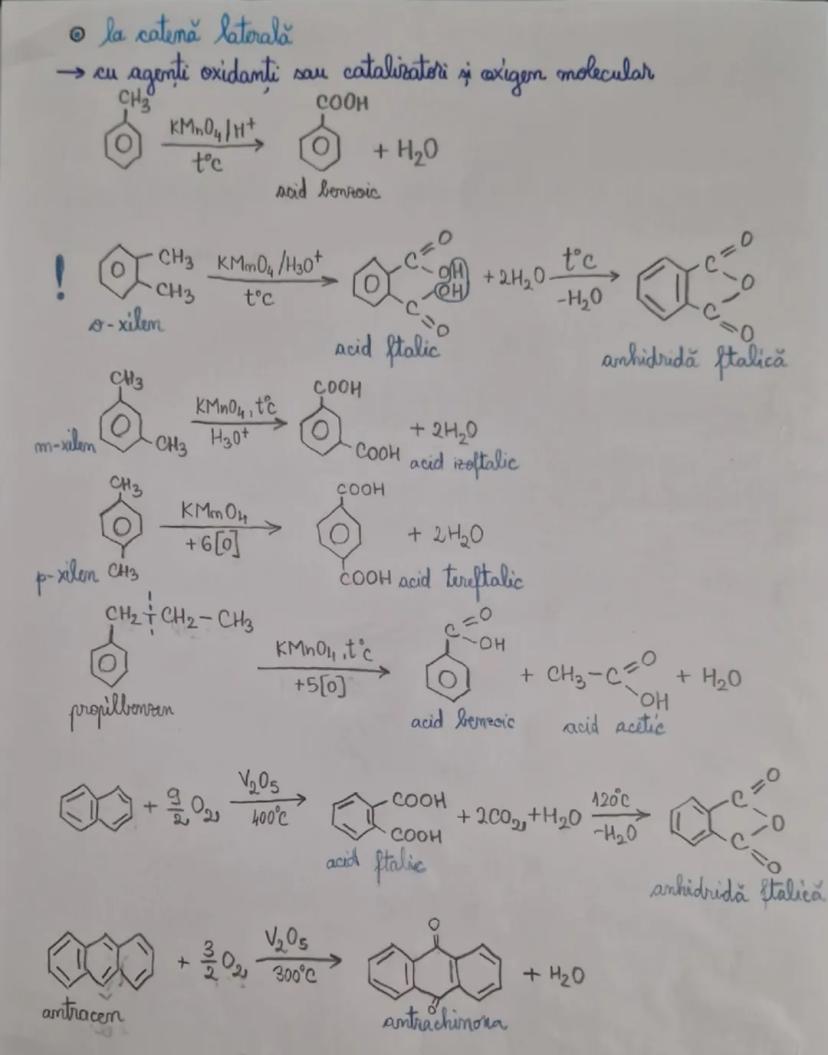 ⊙ la catenă laterală
→ cu agenți oxidanți sau catalizatori și oxigen molecular
CH3 COOH
KMnO4/H+
t°C
+ H2O
acid benzoic
! CH3 CH3
KMnO4/H3O+
t°C
C=O OH OH C=O
+ 2H2O
t°C
-H2O
C=O O C=O
o-xilen
acid ftalic
anhidridă ftalică
CH3 COOH
m-xilen CH3
KMnO4, t°C
H3O+
COOH
+ 2H2O
acid izoftalic
CH3 COOH
KMnO4
+6[O]
+ 2H2O
p-xilen CH3 COOH acid tereftalic
CH2-CH2-CH3
KMnO4, t°C
+5[O]
C=O OH
+ CH3-C=O OH + H2O
propilbenzen
acid benzoic acid acetic
+ 9/2 O2
V2O5
400°C
COOH COOH
+ 2CO2 + H2O
120°C
-H2O
C=O O C=O
acid ftalic
anhidridă ftalică
+ 3/2 O2
V2O5
300°C
O O
+ H2O
antracen
antrachinona